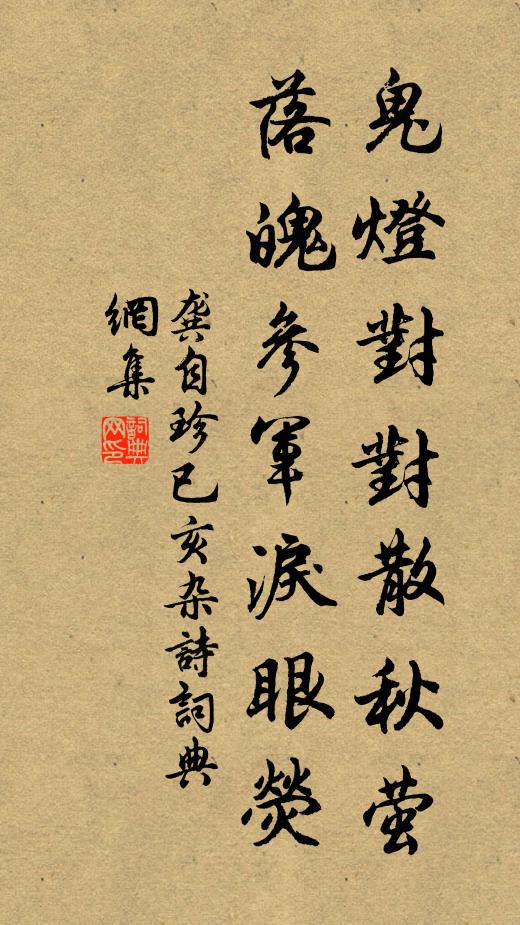 鬼燈對對散秋萤
落魄參軍淚眼熒
龔自珍已亥杂詩詞典
網集
詞典网印